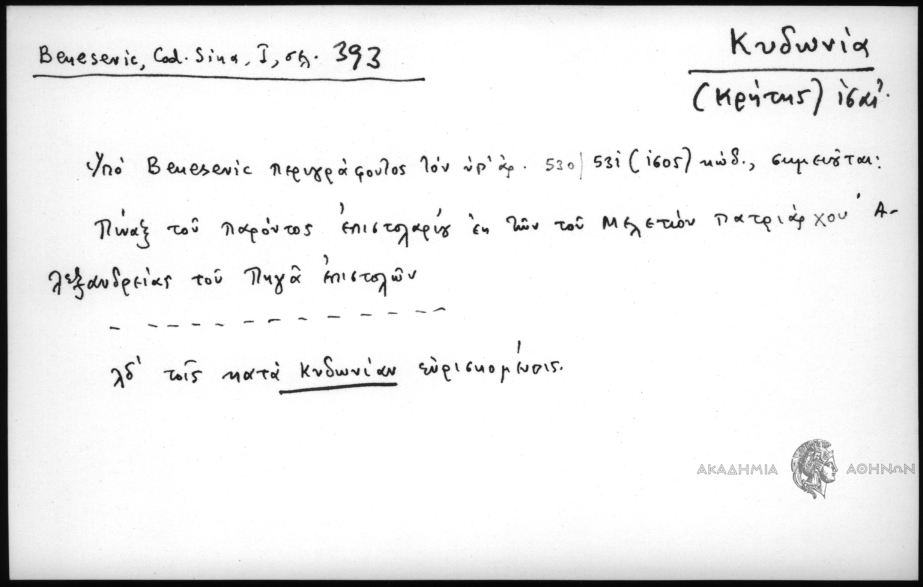 Benesevic, Cod. Sina, I, σελ. 393
Κυδωνία
(Κρήτης) ἰσαί.
Ὑπό Benesevic περιγράφοντος τόν ὑπ' ἀρ. 530/531 (ἰσος) κώδ., σημειοῦται:
Πίναξ τοῦ παρόντος ἐπιστολαρίου ἐκ τῶν τοῦ Μελετίου πατριάρχου Ἀ-
λεξανδρείας τοῦ Πηγᾶ ἐπιστολῶν
λδ' τοῖς κατὰ Κυδωνίαν εὑρισκομένοις.
ΑΚΑΔΗΜΙΑ ΑΘΗΝΩΝ